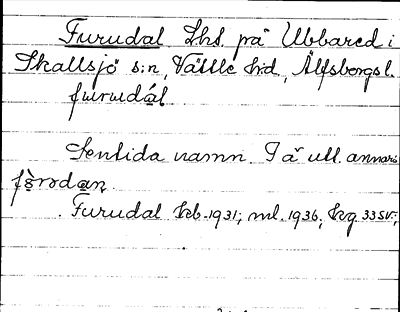 Furudal Lhs. på Ubbared i
Skallsjö s:n, Vättle hd, Älfsborgs l.
furudál
Sentida namn. I ä utt. annars
fø̀rodan.
Furudal Kb. 1931; ml. 1936, Kg 33 SV;